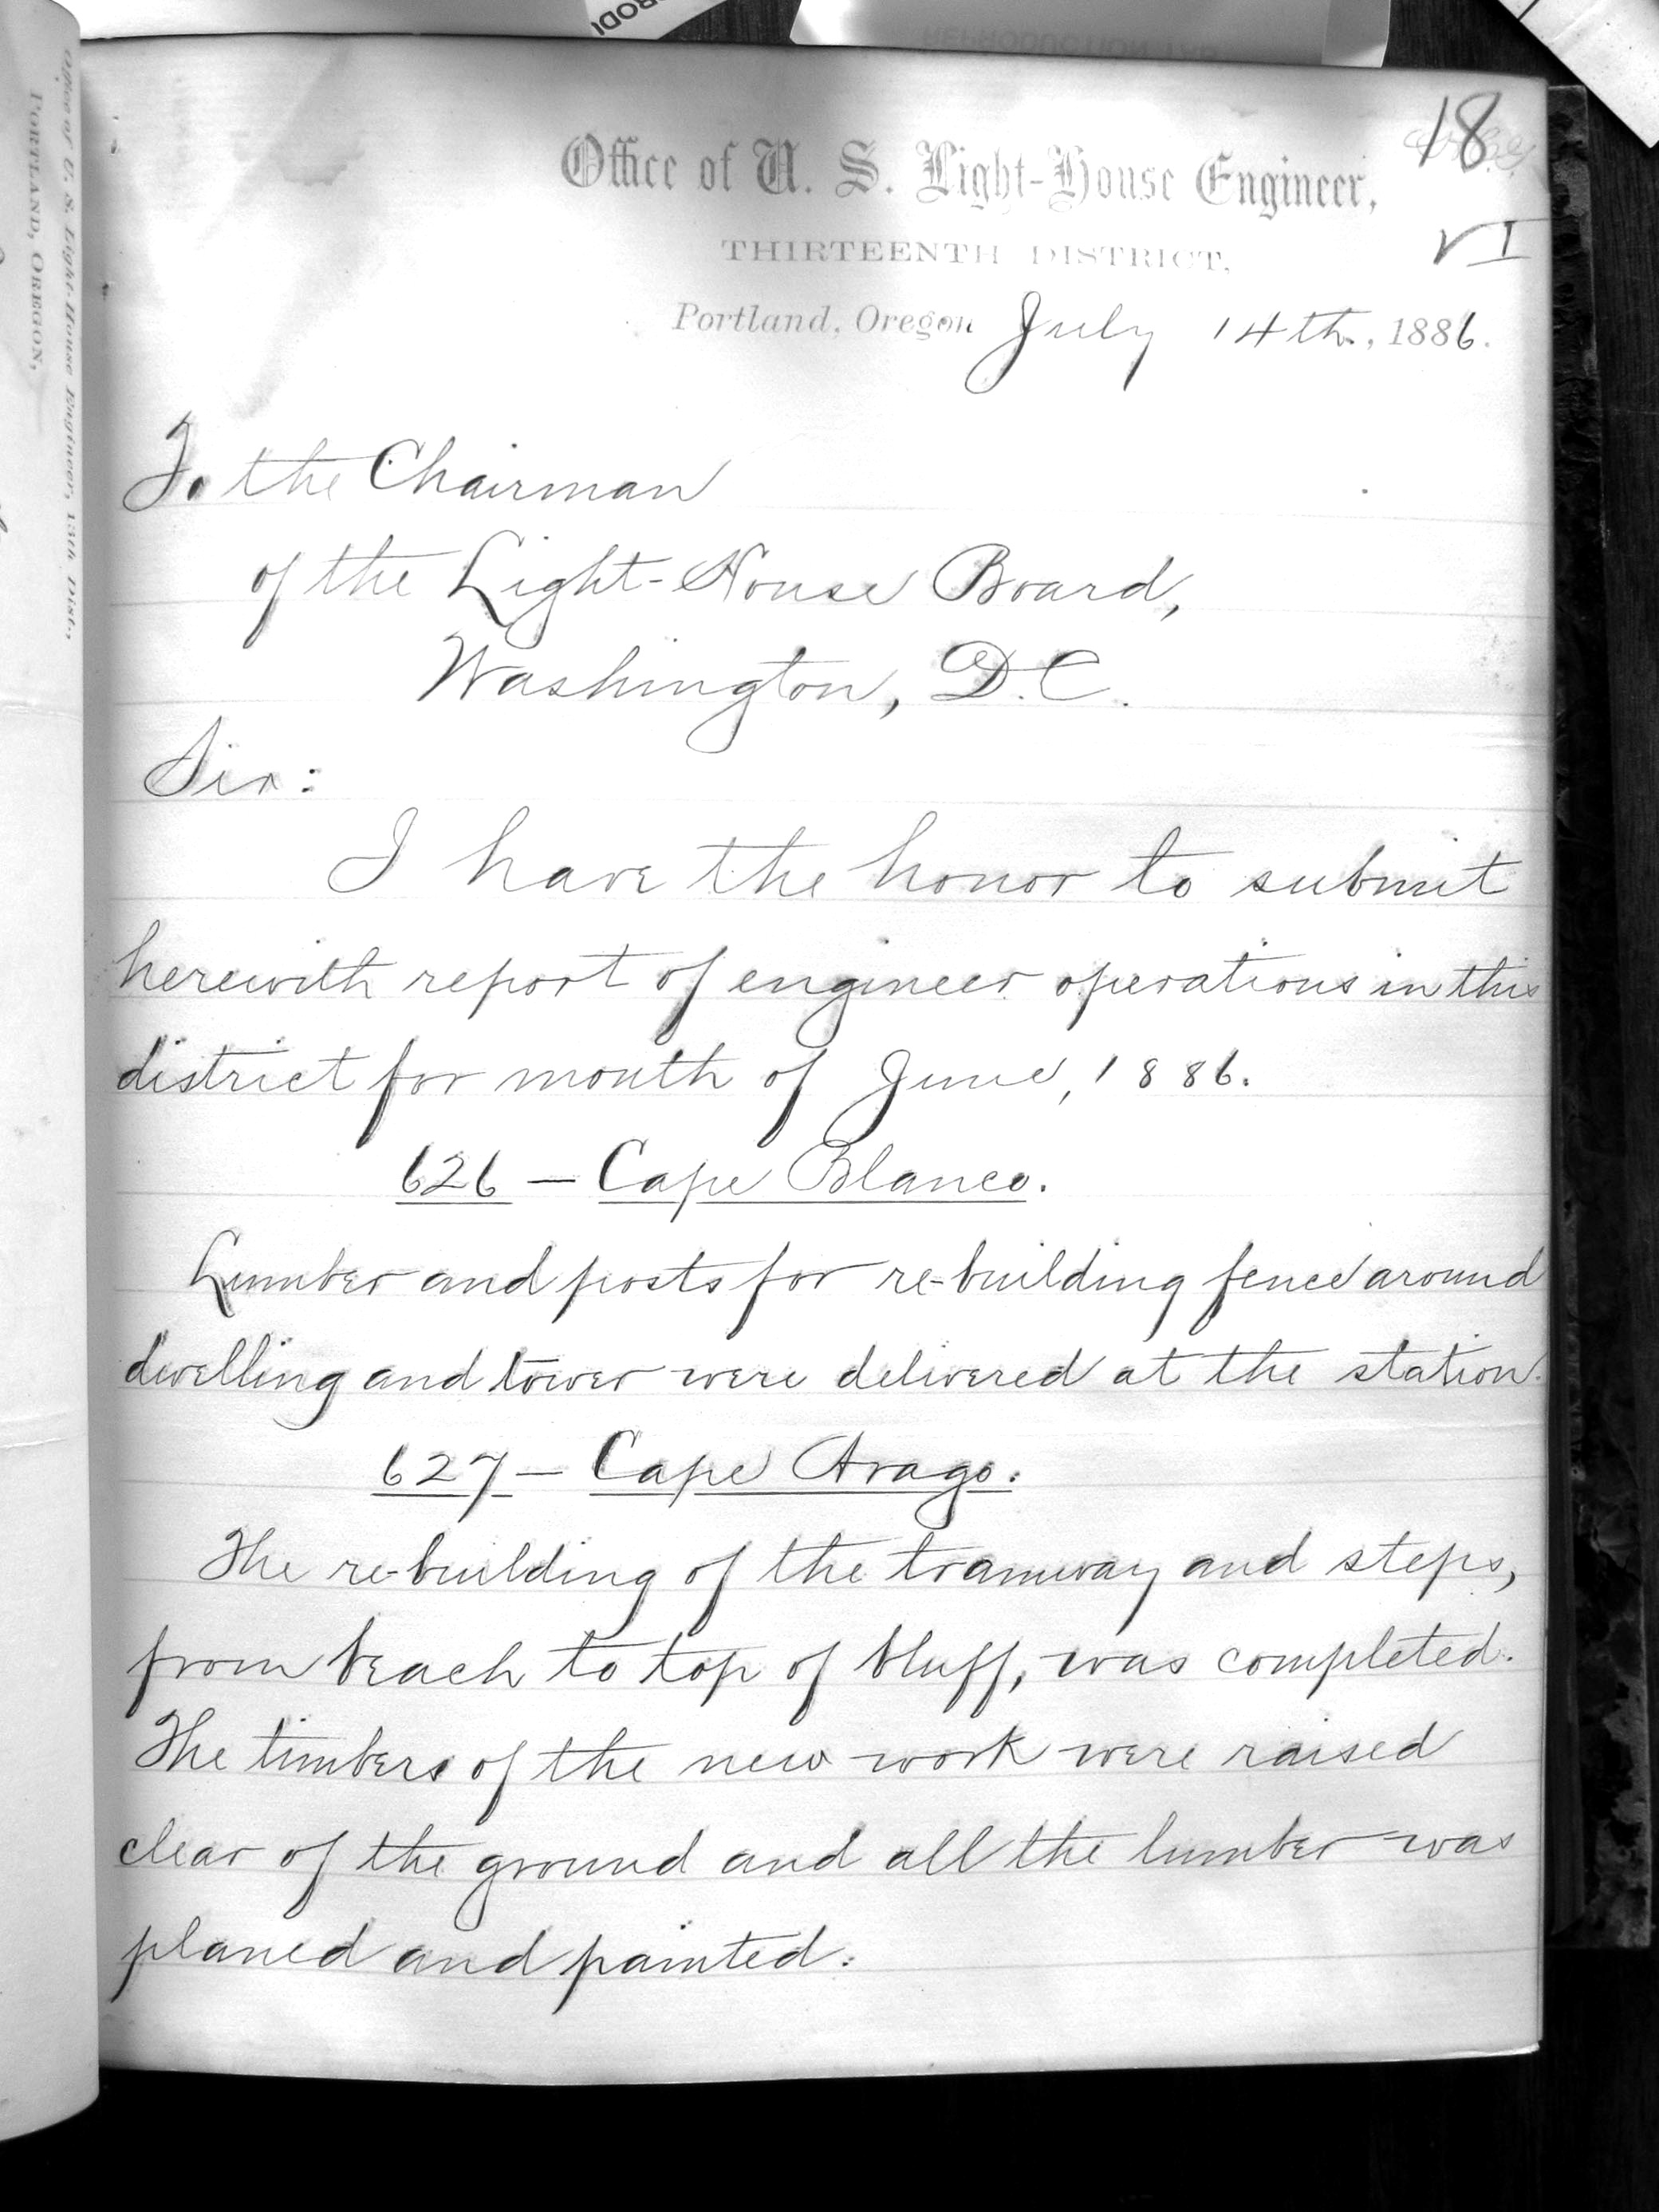 18
Office of U. S. Light-House Engineer,
THIRTEENTH DISTRICT,
VI
Portland, Oregon July 14th, 1886.
To the Chairman
of the Light-House Board,
Washington, D.C.
Sir:
I have the honor to submit
herewith report of engineer operations in this
district for month of June, 1886.
626 — Cape Blanco.
Lumber and posts for re-building fence around
dwelling and tower were delivered at the station.
627 — Cape Arago.
The re-building of the tramway and steps,
from beach to top of bluff, was completed.
The timbers of the new work were raised
clear of the ground and all the lumber was
planed and painted.
Office of U. S. Light-House Engineer, 13th Dist.,
PORTLAND, OREGON,
REPRODUCTION